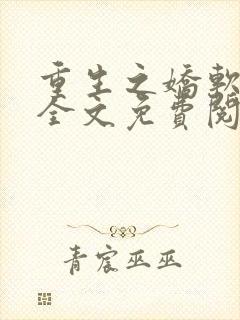 重生之嬌軟
全文免費閱
青宸巫巫